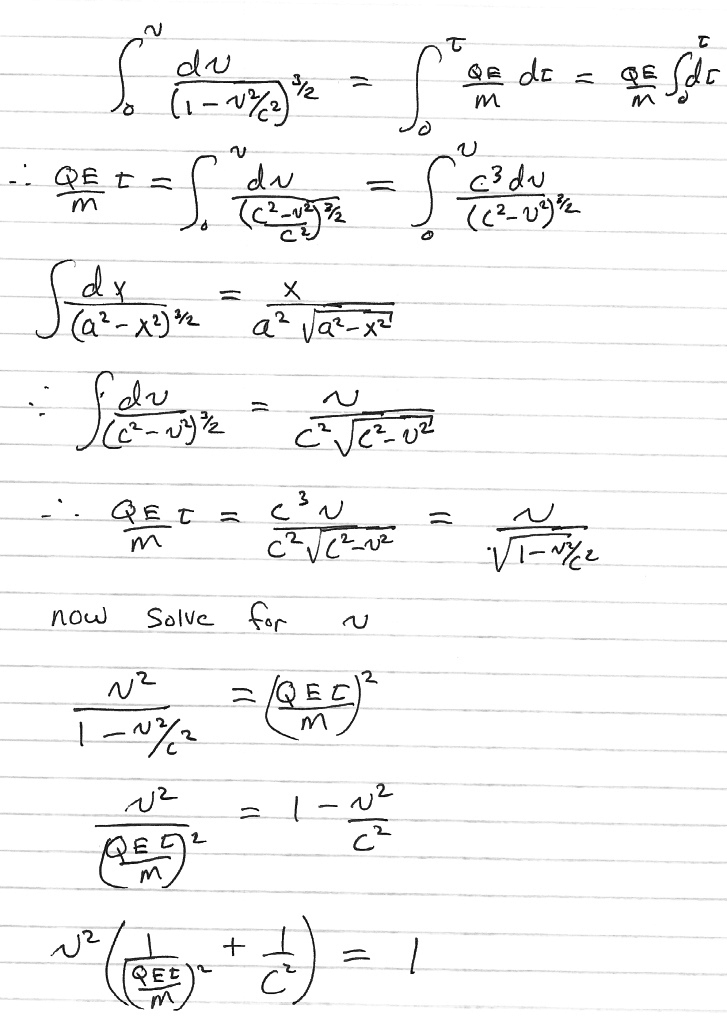 ∫₀^v dv/(1 − v²/c²)^3/2 = ∫₀^t QE/m dt = QE/m ∫₀^t dt
∴ QE/m t = ∫₀^v dv/((c²−v²)/c²)^3/2 = ∫₀^v c³dv/(c²−v²)^3/2
∫ dx/(a²−x²)^3/2 = x/(a²√(a²−x²))
∴ ∫ dv/(c²−v²)^3/2 = v/(c²√(c²−v²))
∴ QE/m t = c³v/(c²√(c²−v²)) = v/√(1−v²/c²)
now solve for v
v²/(1−v²/c²) = (QEt/m)²
v²/(QEt/m)² = 1 − v²/c²
v²(1/(QEt/m)² + 1/c²) = 1